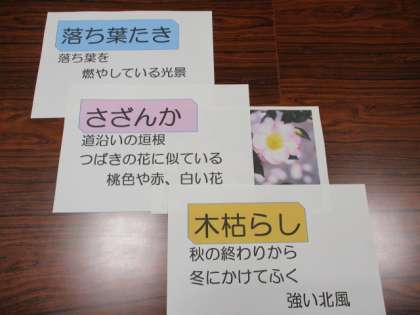 落ち葉たき
落ち葉を
燃やしている光景
さざんか
道沿いの垣根
つばきの花に似ている
桃色や赤、白い花
木枯らし
秋の終わりから
冬にかけてふく
強い北風